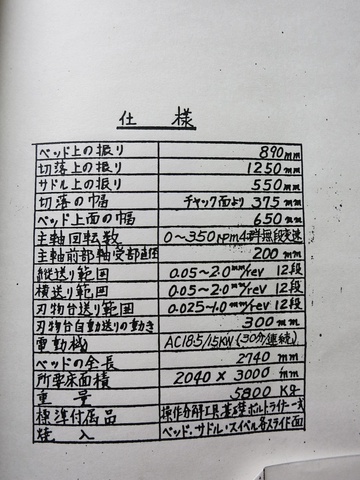 仕 様
ベッド上の振り 890mm
切落上の振り 1250mm
サドル上の振り 550mm
切落の幅 チャック面より 375mm
ベッド上面の幅 650mm
主軸回転数 0～350rpm 4群無段変速
主軸前部軸受部直径 200mm
縦送り範囲 0.05～2.0mm/rev 12段
横送り範囲 0.05～2.0mm/rev 12段
刃物台送り範囲 0.025～1.0mm/rev 12段
刃物台自動送りの動き 300mm
電動機 AC18.5/15KW(30分/連続)
ベッドの全長 2740mm
所要床面積 2040×3000mm
重量 5800Kg
標準付属品 操作分解工具.基礎ボルトライナー一式
焼入 ベッド.サドル.スイベル各スライド面